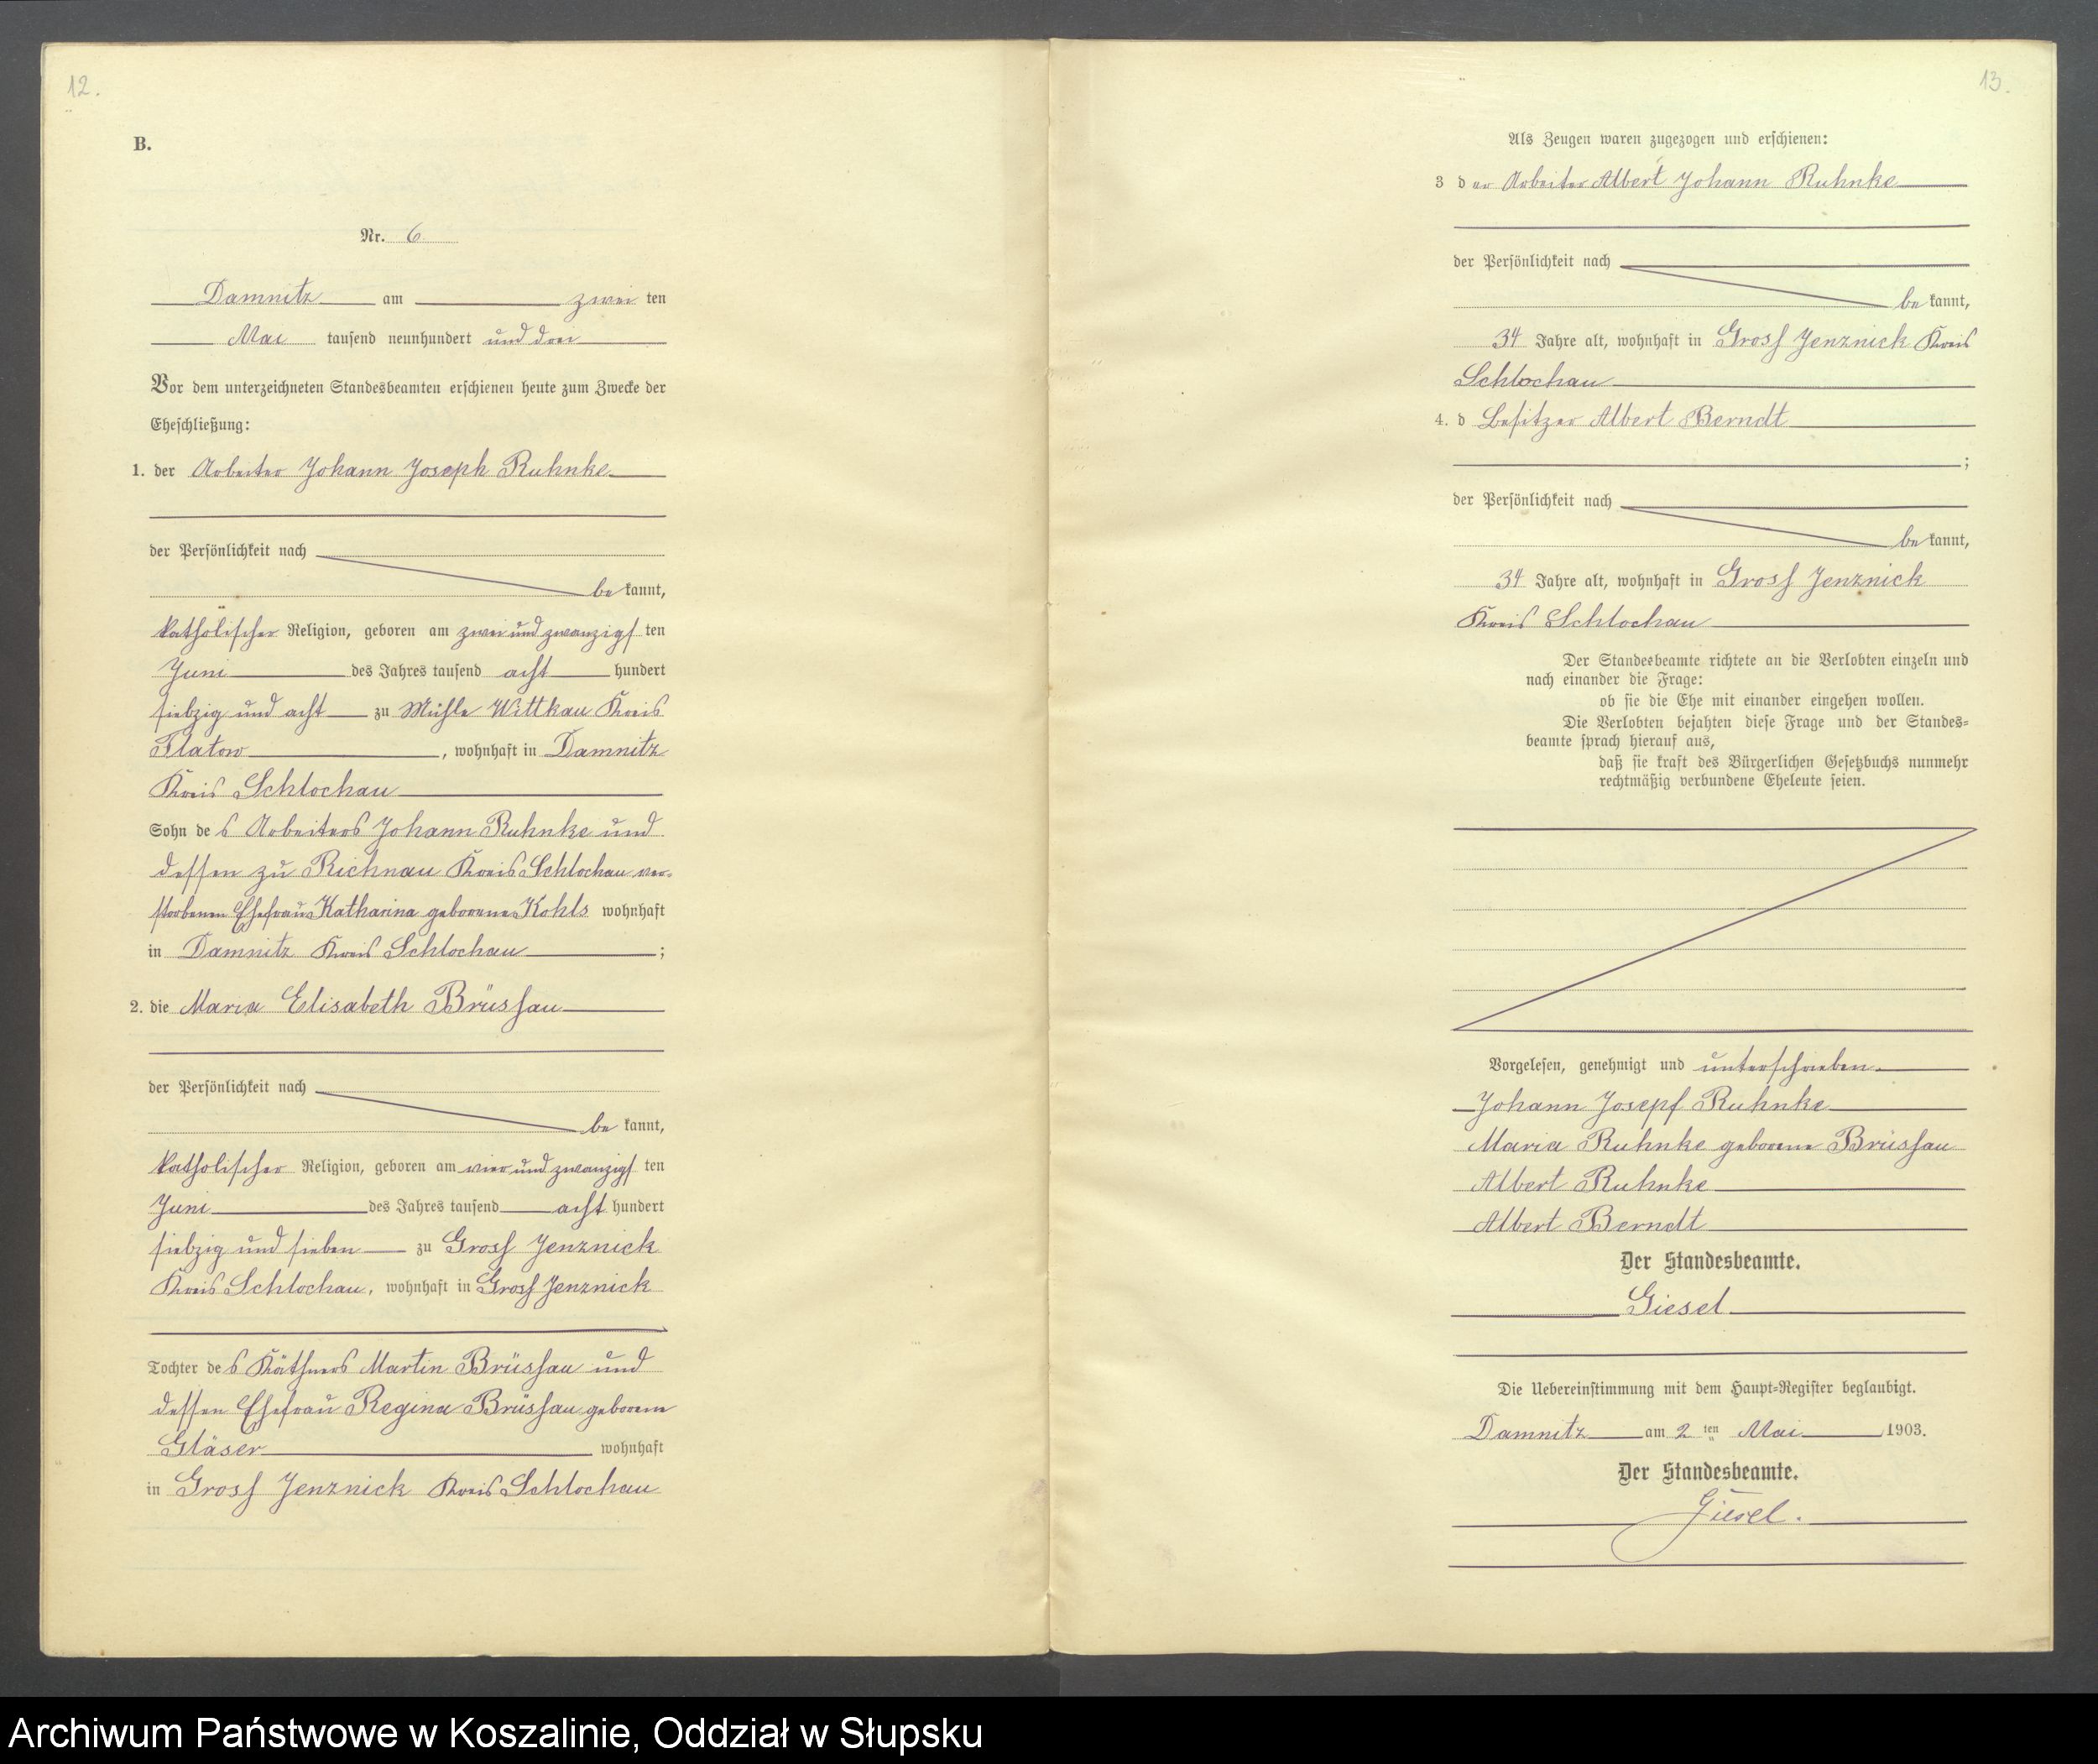 12.
B.
Nr. 6
Damnitz am zwei ten
Mai tausend neunhundert und drei
Vor dem unterzeichneten Standesbeamten erschienen heute zum Zwecke der
Eheschließung:
1. der Arbeiter Johann Joseph Ruhnke
der Persönlichkeit nach
be kannt,
katholischer Religion, geboren am zwei und zwanzigs ten
Juni des Jahres tausend acht hundert
siebzig und acht zu Mühle Wittkau Kreis
Flatow, wohnhaft in Damnitz
Kreis Schlochau
Sohn de s Arbeiters Johann Ruhnke und
dessen zu Richnau Kreis Schlochau ver-
storbenen Ehefrau Katharina geborenen Kohls wohnhaft
in Damnitz Kreis Schlochau ;
2. die Maria Elisabeth Brüsshau
der Persönlichkeit nach
be kannt,
katholischer Religion, geboren am vier und zwanzigs ten
Juni des Jahres tausend acht hundert
siebzig und sieben zu Gross Jenznick
Kreis Schlochau, wohnhaft in Gross Jenznick
Tochter de s Käthners Martin Brüssau und
dessen Ehefrau Regina Brüssau geborene
Gläser wohnhaft
in Gross Jenznick Kreis Schlochau
13.
Als Zeugen waren zugezogen und erschienen:
3 d er Arbeiter Albert Johann Ruhnke
der Persönlichkeit nach
be kannt,
34 Jahre alt, wohnhaft in Gross Jenznick Kreis
Schlochau
4. d Besitzer Albert Berndt
;
der Persönlichkeit nach
be kannt,
34 Jahre alt, wohnhaft in Gross Jenznick
Kreis Schlochau
Der Standesbeamte richtete an die Verlobten einzeln und
nach einander die Frage:
ob sie die Ehe mit einander eingehen wollen.
Die Verlobten bejahten diese Frage und der Standes-
beamte sprach hierauf aus,
daß sie kraft des Bürgerlichen Gesetzbuchs nunmehr
rechtmäßig verbundene Eheleute seien.
Vorgelesen, genehmigt und unterschrieben.
Johann Josepf Ruhnke
Maria Ruhnke geborene Brüssau
Albert Ruhnke
Albert Berndt
Der Standesbeamte.
Giesel
Die Uebereinstimmung mit dem Haupt-Register beglaubigt.
Damnitz am 2 ten Mai 1903.
Der Standesbeamte.
Giesel.
Archiwum Państwowe w Koszalinie, Oddział w Słupsku